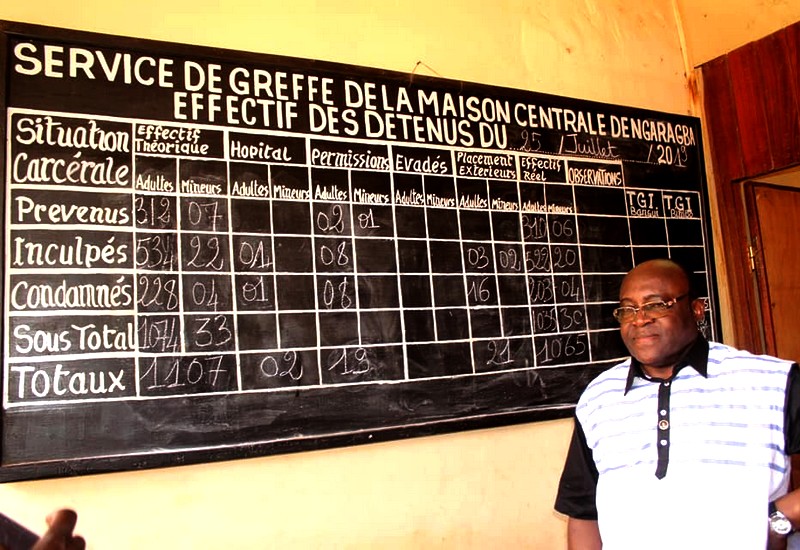 SERVICE DE GREFFE DE LA MAISON CENTRALE DE NGARAGBA
EFFECTIF DES DETENUS DU 25 / Juillet / 2019
Situation Carcérale Effectif Théorique Hopital Permissions Evadés Placement Exterieurs Effectif Réel OBSERVATIONS
Adultes Mineurs Adultes Mineurs Adultes Mineurs Adultes Mineurs Adultes Mineurs Adultes Mineurs T.G.I. Bangui T.G.I
Prevenus 312 07 02 01 310 06
Inculpés 534 22 01 08 03 02 522 20
Condamnés 228 04 01 08 16 203 04
Sous Total 1074 33 1035 30
Totaux 1107 02 19 21 1065